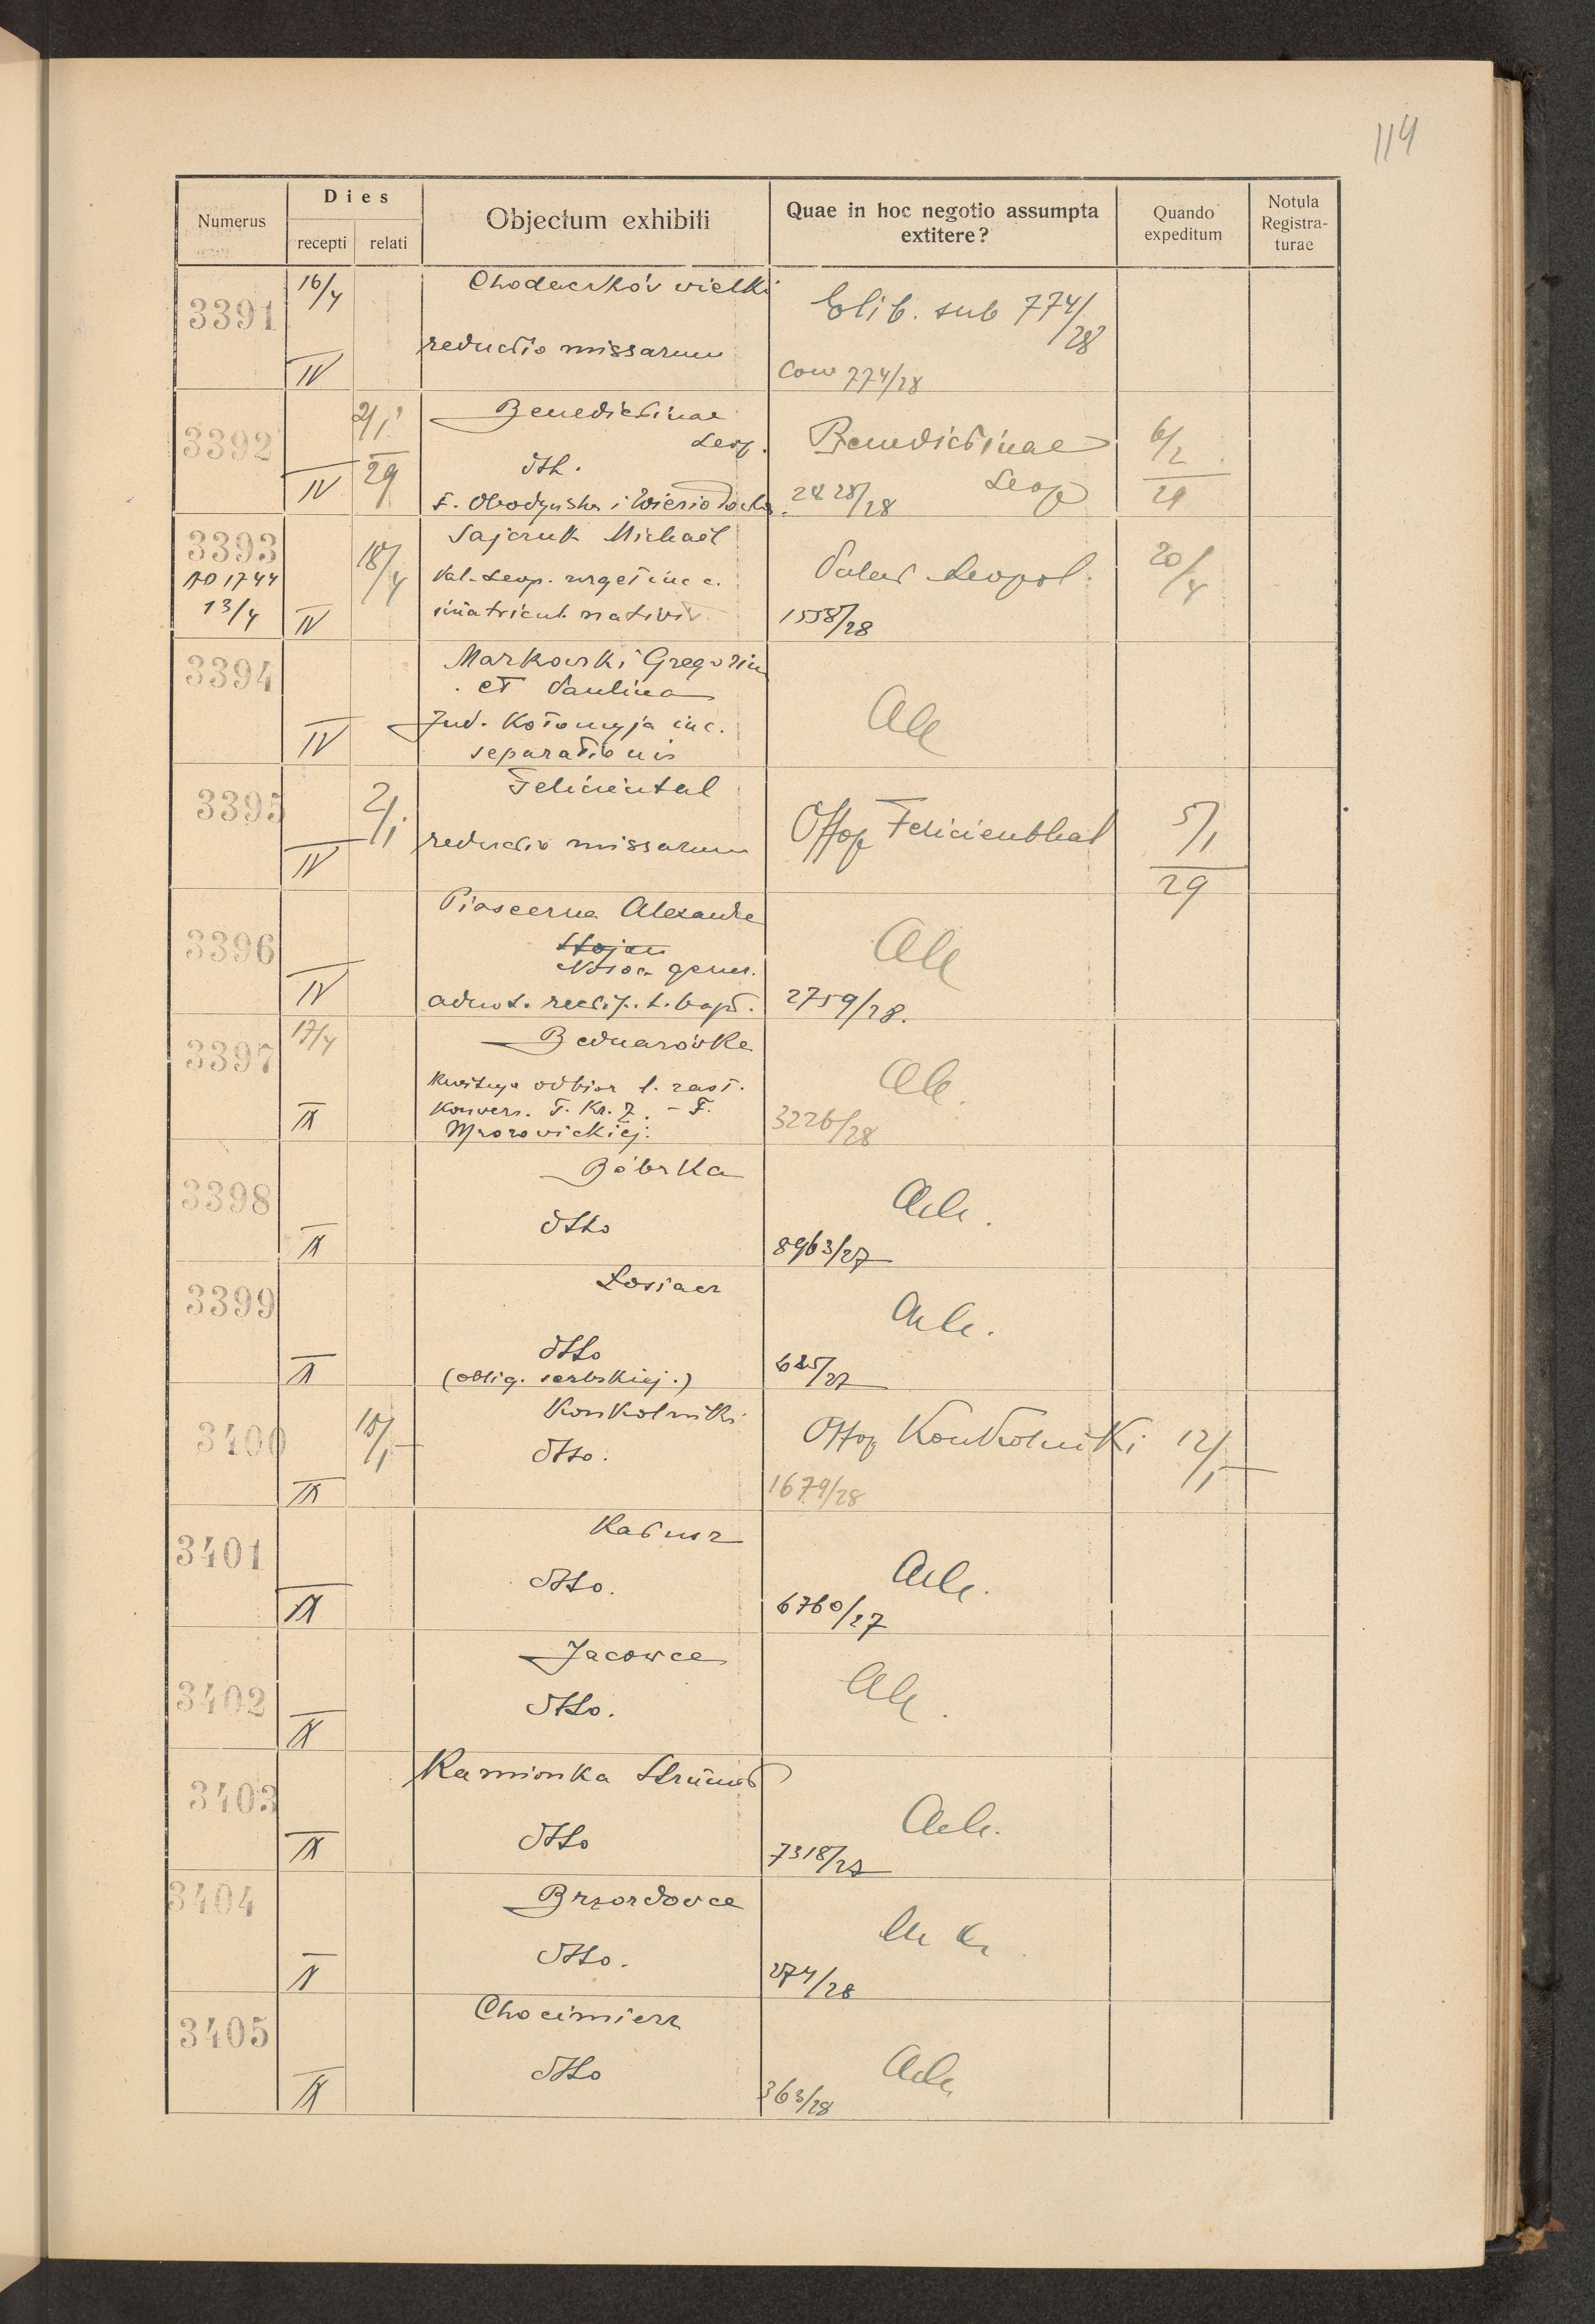 114
Numerus
Dies
recepti
relati
Objectum exhibiti
Quae in hoc negotio assumpta
extitere?
Quando
expeditum
Notula
Registra-
turae
3391
16/4
IV
reductio missarum
Elib. sub 774/28
774/28
3392
2/1 29
IV
Benedictinae
Leop.
Benedictinae
Leop
2828/28
6/2 29
3393
AO 1744
13/4
18/4
IV
Sajczuk Michael
Pal. Leop. urget in c.
matricul. nativit.
Palat Leopol.
1558/28
20/4
3394
IV
Markowski Gregorius
et Paulina
Jud. Kołomyja in c.
separationis
Ale
3395
2/1
IV
Feliciental
reductio missarum
Offop Felicienthal
5/1 29
3396
IV
Alexandra
Stojan
gener.
adnot. rectif. l. bapt.
Ale
2759/28.
3397
17/4
IX
Bednarówka
Kwituje odbiór l. zast.
Konvers. T. Kr. Z. - F.
Mrozowickiej.
Ale.
3226/28
3398
IX
Bóbrka
dtto
Ale.
8963/27
3399
IX
Łosiacz
dtto
(oblig. serbskiej.)
Ale.
685/27
3400
10/1
IX
Konkolniki
dtto.
Offop Konkolniki
1679/28
12/1
3401
IX
Kałusz
dtto.
Ale.
6760/27
3402
IX
Jacowce
dtto.
Ale.
3403
IX
Kamionka Strumił
dtto
Ale.
7318/27
3404
IX
Brzozdowce
dtto.
274/28
3405
IX
Chocimierz
dtto
Ale
363/28